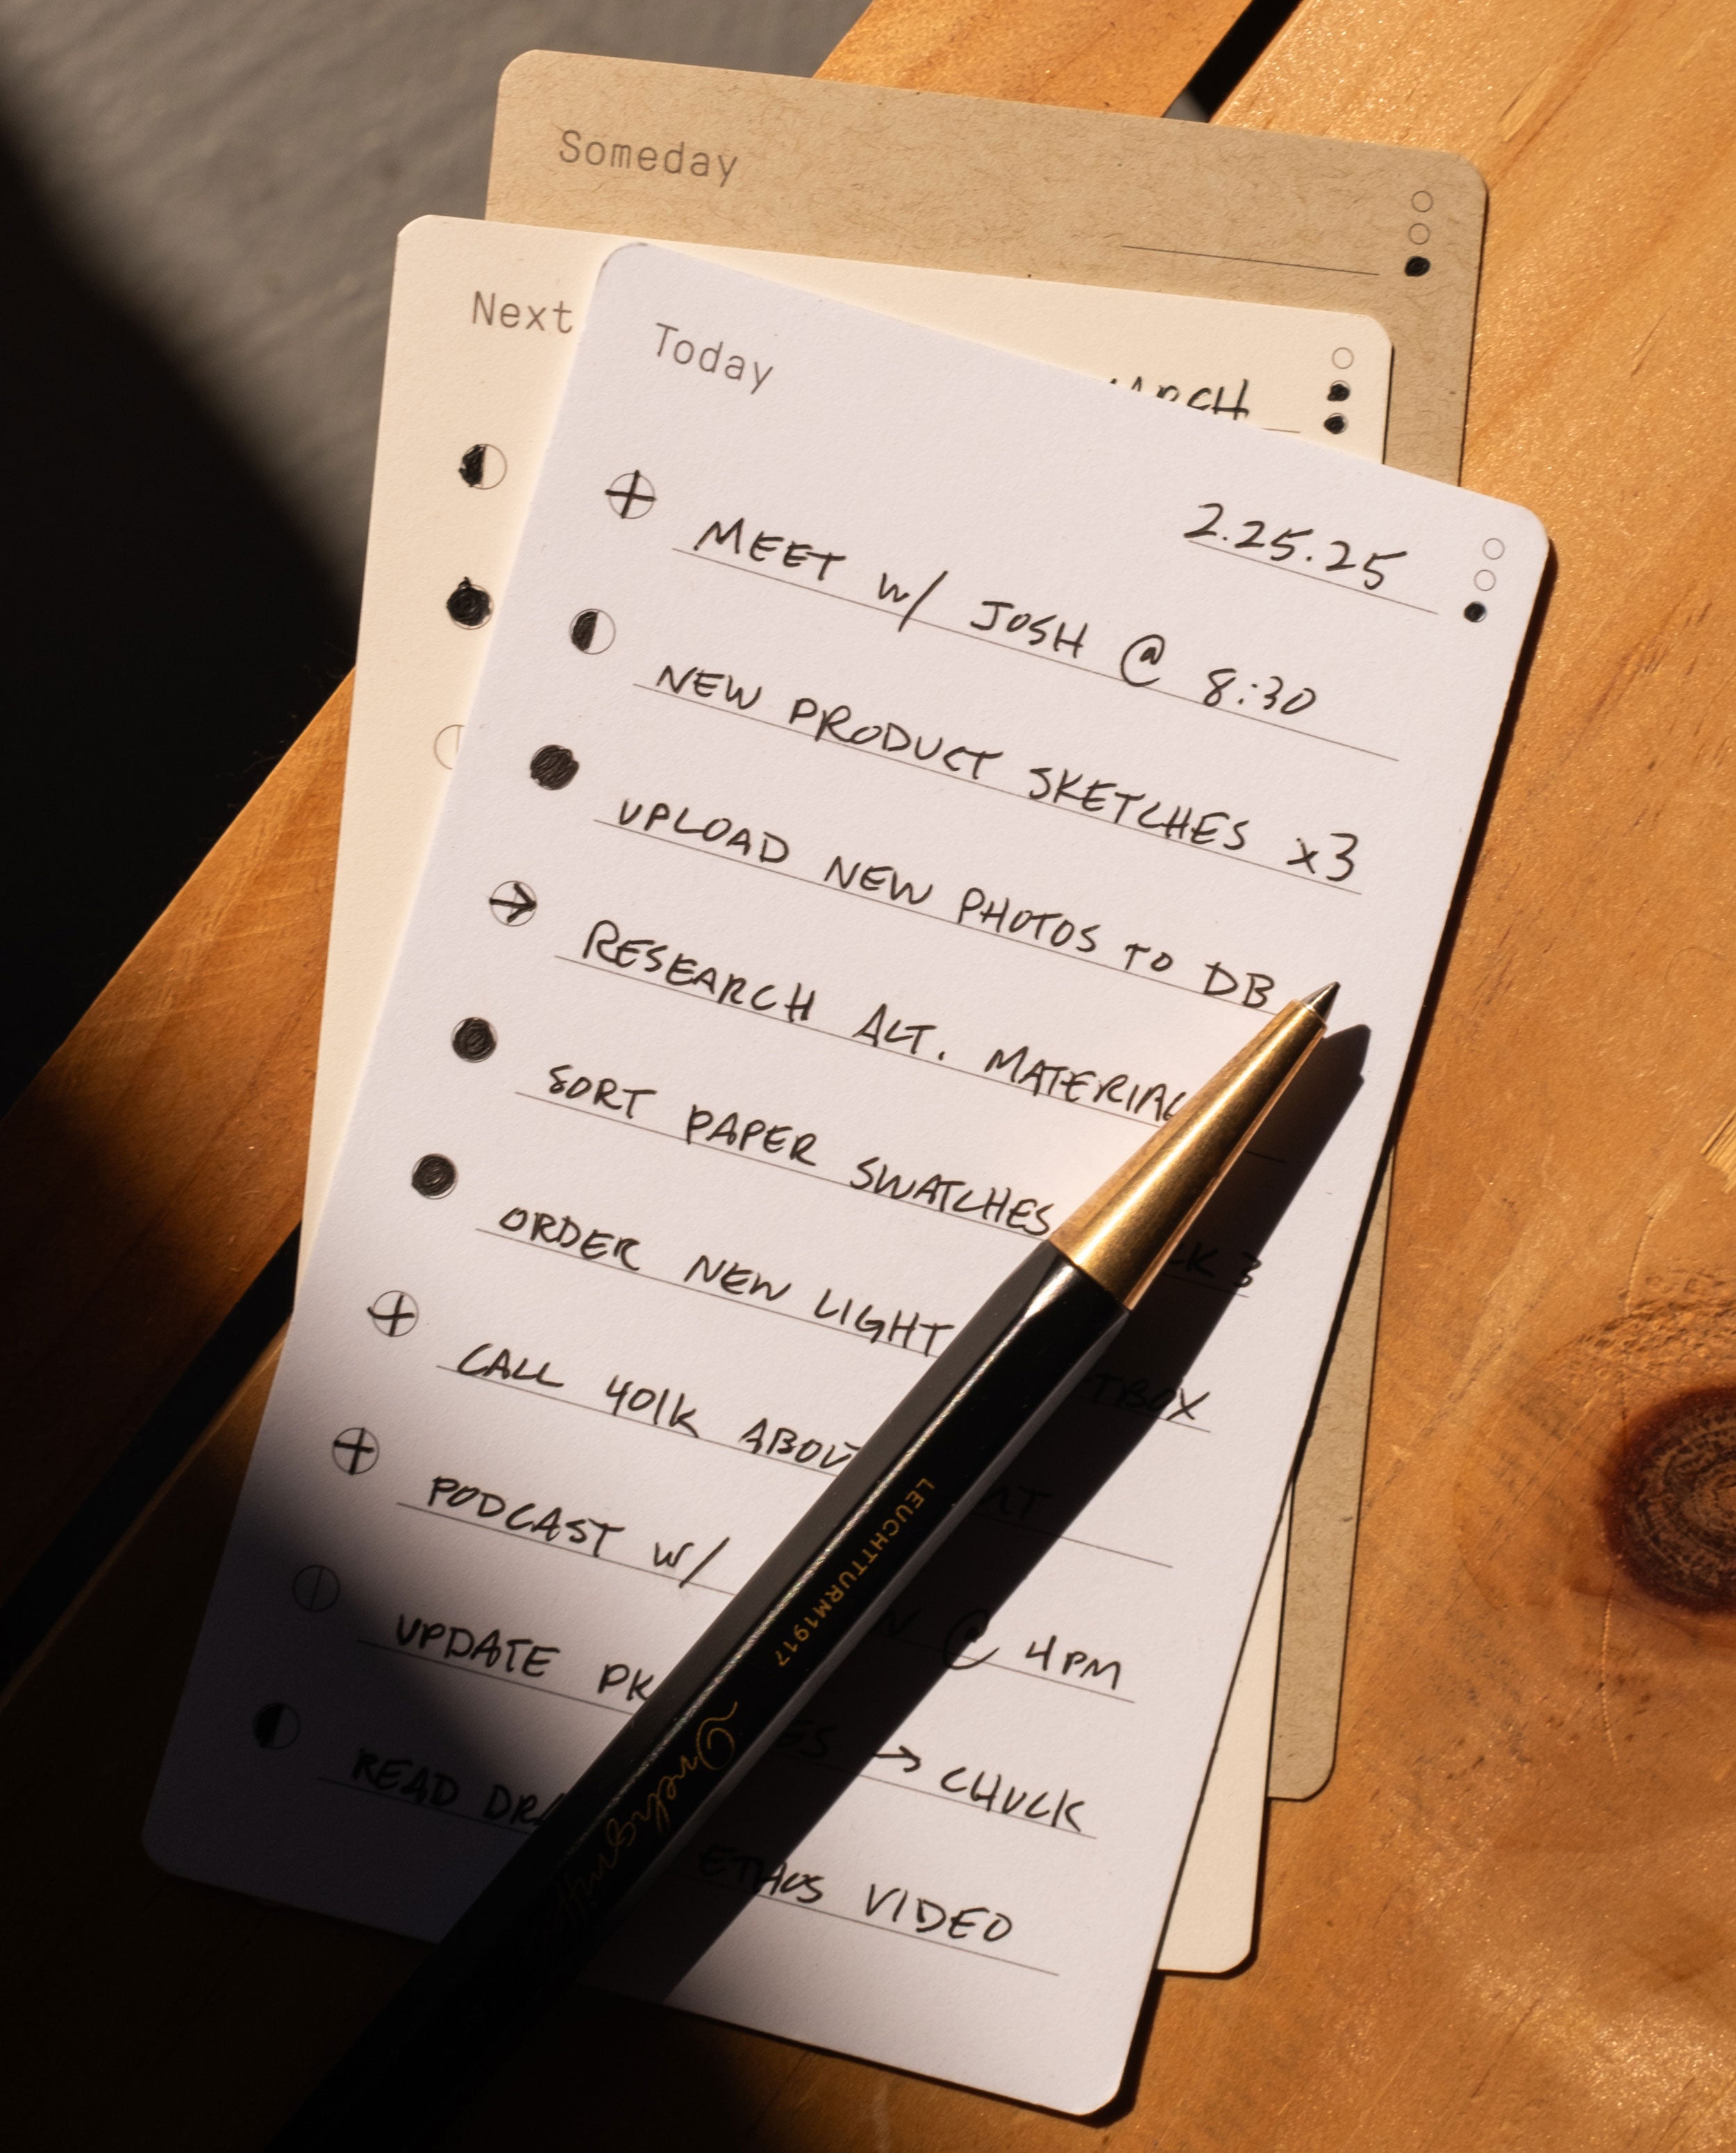 Someday
Next
Today
2.25.25
MEET w/ JOSH @ 8:30
NEW PRODUCT SKETCHES x3
UPLOAD NEW PHOTOS TO DB
RESEARCH ALT.
SORT PAPER SWATCHES 3
ORDER NEW LIGHT
CALL 401K
PODCAST w/ @ 4PM
UPDATE → CHUCK
READ ETHOS VIDEO
LEUCHTTURM1917
Drehgriffel